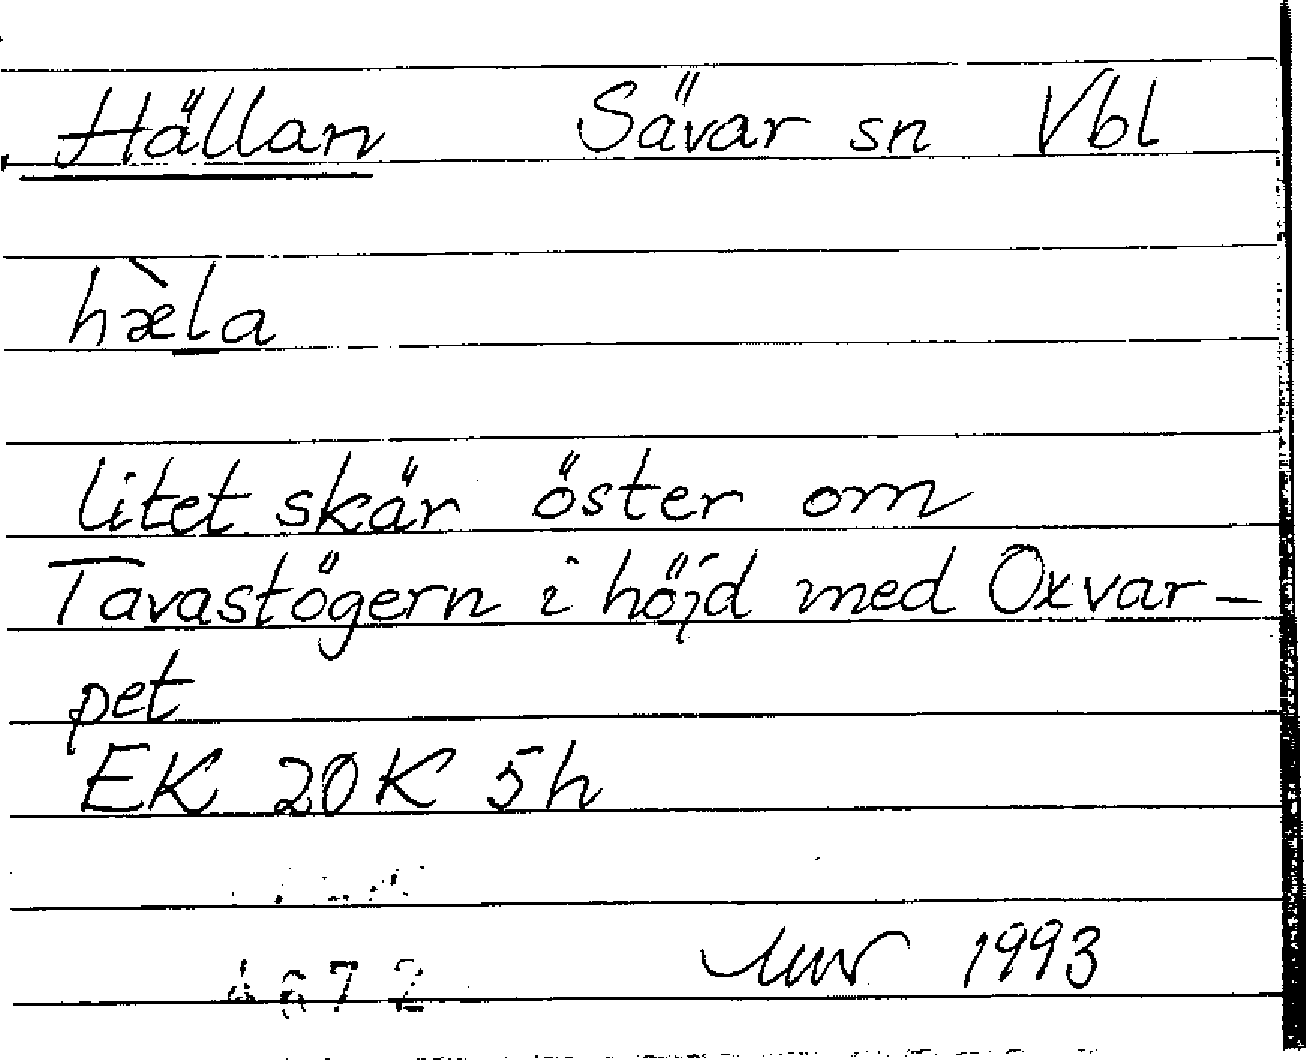 Hällan Sävar sn Vbl
hæ̀la
litet skär öster om
Tavastögern i höjd med Oxvar-
pet
EK 20K 5h
1993